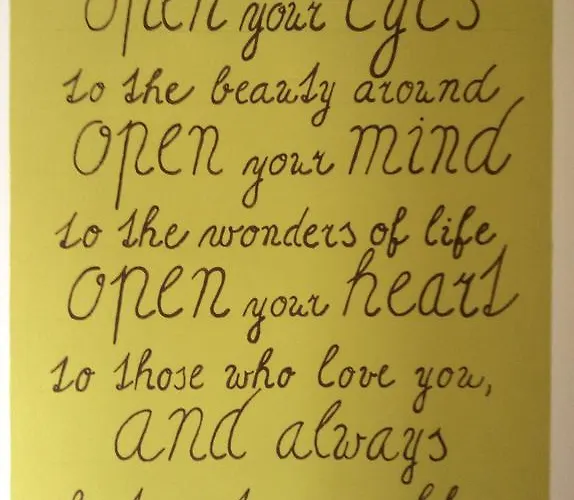 open your eyes
to the beauty around
open your mind
to the wonders of life
open your heart
to those who love you,
and always